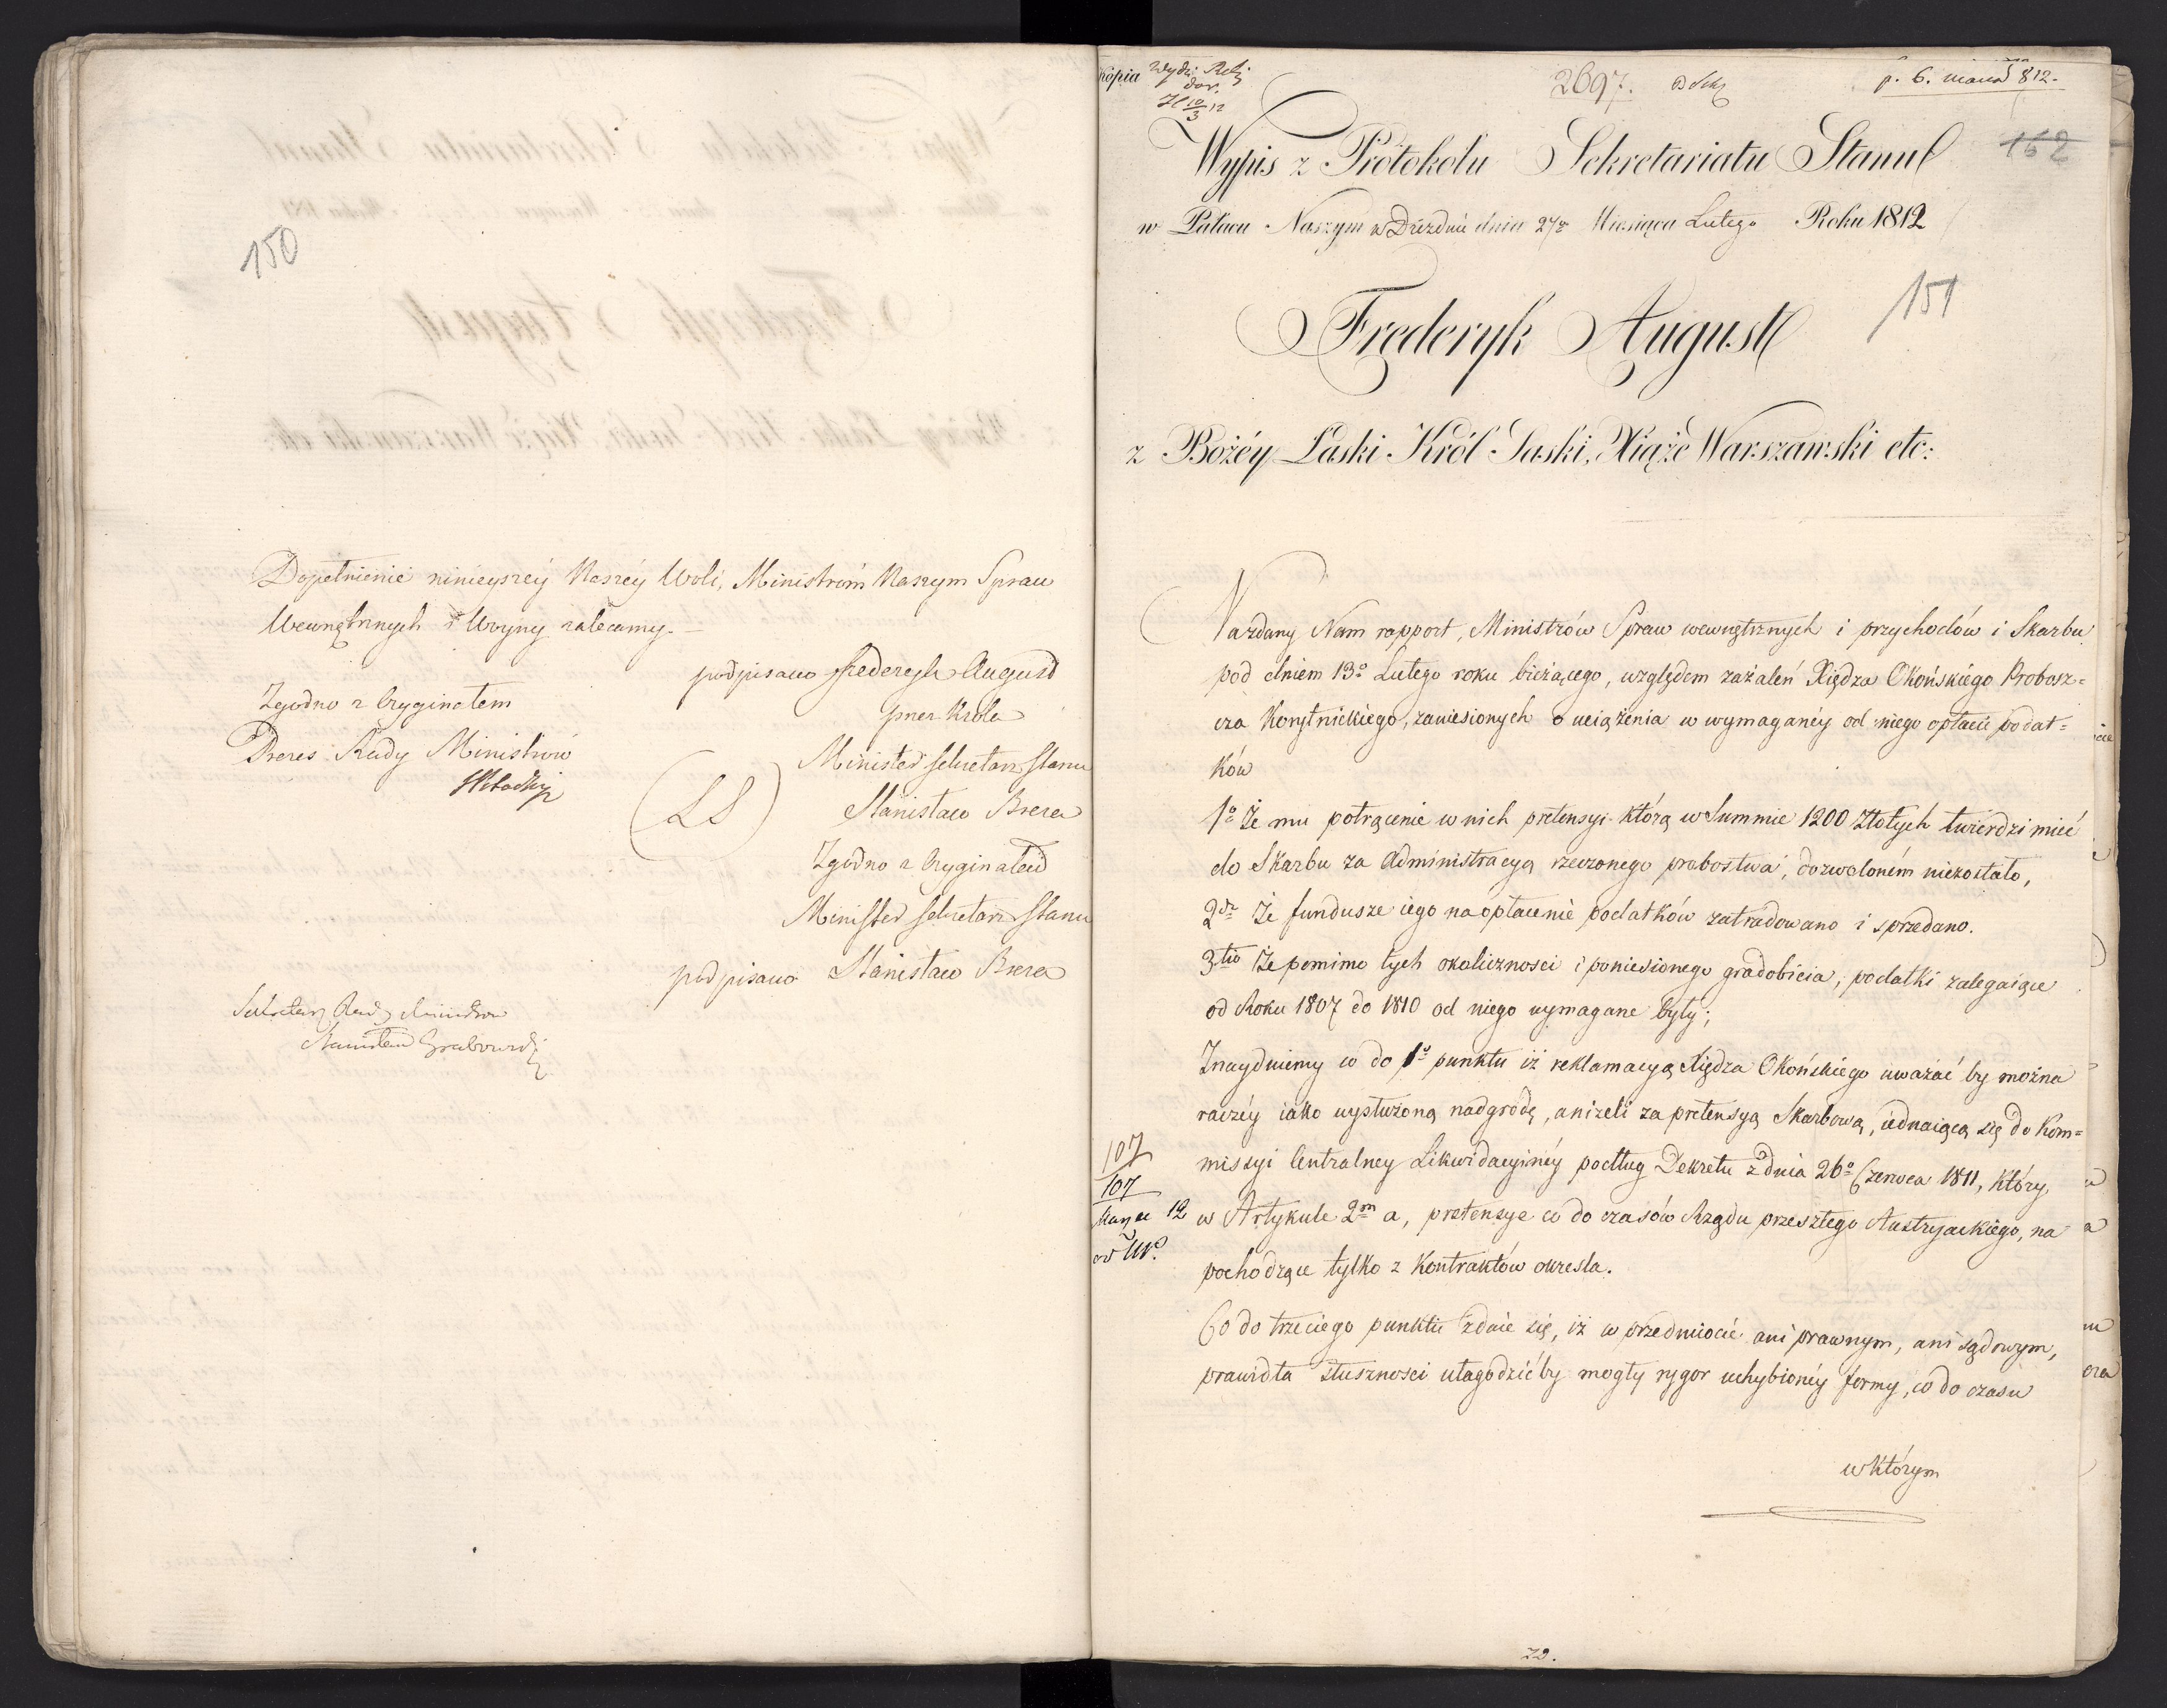 150
Dopełnienie ninieyszey Naszéy Woli, Ministróm Naszym Spraw
Wewnętrznych i Woyny zalecamy. —
podpisano Frederyk August
przez Króla
Minister Sekretarz Stanu
(LS) Stanisław Breza
Zgodno z Oryginałem
Minister Sekretarz Stanu
podpisano Stanisław Breza
Zgodno z Oryginałem
Prezes Rady Ministrów
Sekretarz Rady Ministrów
Stanisław Grabowski
Kopia
2697.
p. 6. marca 812.
162
Wypis z Protokołu Sekretariatu Stanu
w Pałacu Naszym w Dreznie dnia 27o Miesiąca Lutego Roku 1812
151
Frederyk August
z Bożéy Łaski Król Saski, Xiąże Warszawski etc:
Na zdany Nam rapport, Ministrów Spraw wewnętrznych i przychodów i Skarbu
pod dniem 13o Lutego roku bieżącego, względem zażaleń Xiędza Okońskiego Probosz=
cza Korytnickiego, zaniesionych o uciążenia w wymaganéy od niego opłacie podat=
ków
1o Że mu potrącenie w nich pretensyi którą w Summie 1200 Złotych twierdzi mieć
do Skarbu za Administracyą rzeczonego probostwa, dozwoloném niezostało,
2do Że fundusze iego na opłacenie podatków zatradowano i sprzedano.
3tio Że pomimo tych okoliczności i poniesionego gradobicia, podatki zalegaiące
od Roku 1807 do 1810 od niego wymagane były;
Znayduiemy co do 1o punktu iż reklamacyą Xiędza Okońskiego uważać by można
raczéy iako wysłużoną nadgrodę, aniżeli za pretensyą Skarbową, iednaiącą się do Kom=
missyi Centralney Likwidacyinéy podług Dekretu z dnia 26o Czerwca 1811, który
w Artykule 2m a, pretensye co do czasów Rządu przeszłego Austryackiego, na
pochodzące tylko z Kontraktów okresla.
107
107
Marzec 12
Co do trzeciego punktu zdaie się, iż w przedmiocie ani prawnym, ani sądowym,
prawidła słuszności ułagodzić by mogły rygor uchybionéy formy, co do czasu
w którym
72.